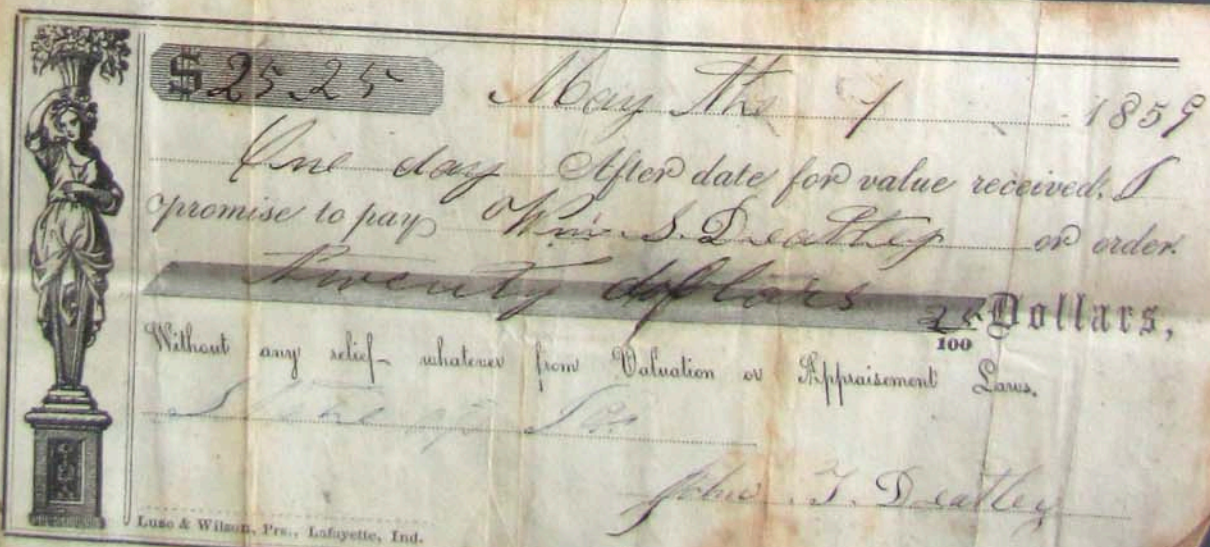 $25.25 May the 1 1859
One day After date for value received. I
promise to pay Wm. S. Deatley or order.
Twenty dollars 25/100 Dollars,
Without any relief whatever from Valuation or Appraisement Laws.
John. T. Deatley
Luse & Wilson, Prs., Lafayette, Ind.